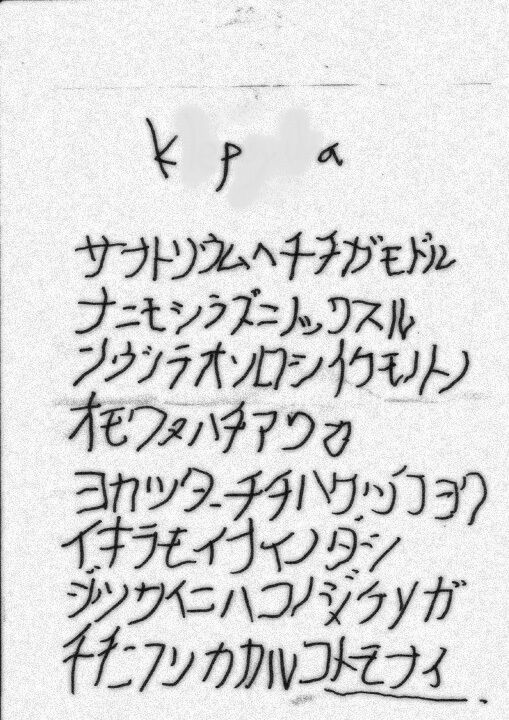 k p a
サナトリウムヘチチガモドル
ナニモシラズニノックスル
ソウシテオソロシイケモノトノ
オモワヌハチアワ
ヨカッターチチハ
イキテモイナイノダシ
ジッサイニハコノジケンガ
チチニフリカカルコトモナイ.